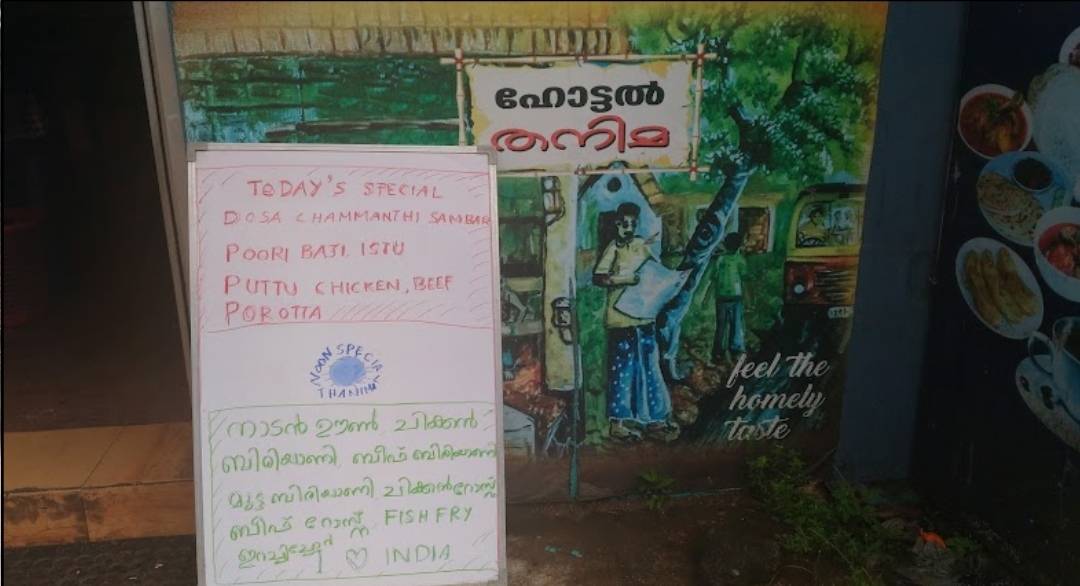 ഹോട്ടൽ
തനിമ
TODAY'S SPECIAL
DOSA CHAMMANTHI SAMBAR
POORI BAJI, ISTU
PUTTU CHICKEN, BEEF
POROTTA
NOON SPECIAL
THANIMA
നാടൻ ഊൺ ചിക്കൻ
ബിരിയാണി, ബീഫ് ബിരിയാണി
മുട്ട ബിരിയാണി ചിക്കൻറോസ്റ്റ്
ബീഫ് റോസ്റ്റ് FISH FRY
ഇറച്ചിച്ചോർ
I ♡ INDIA
feel the
homely
taste